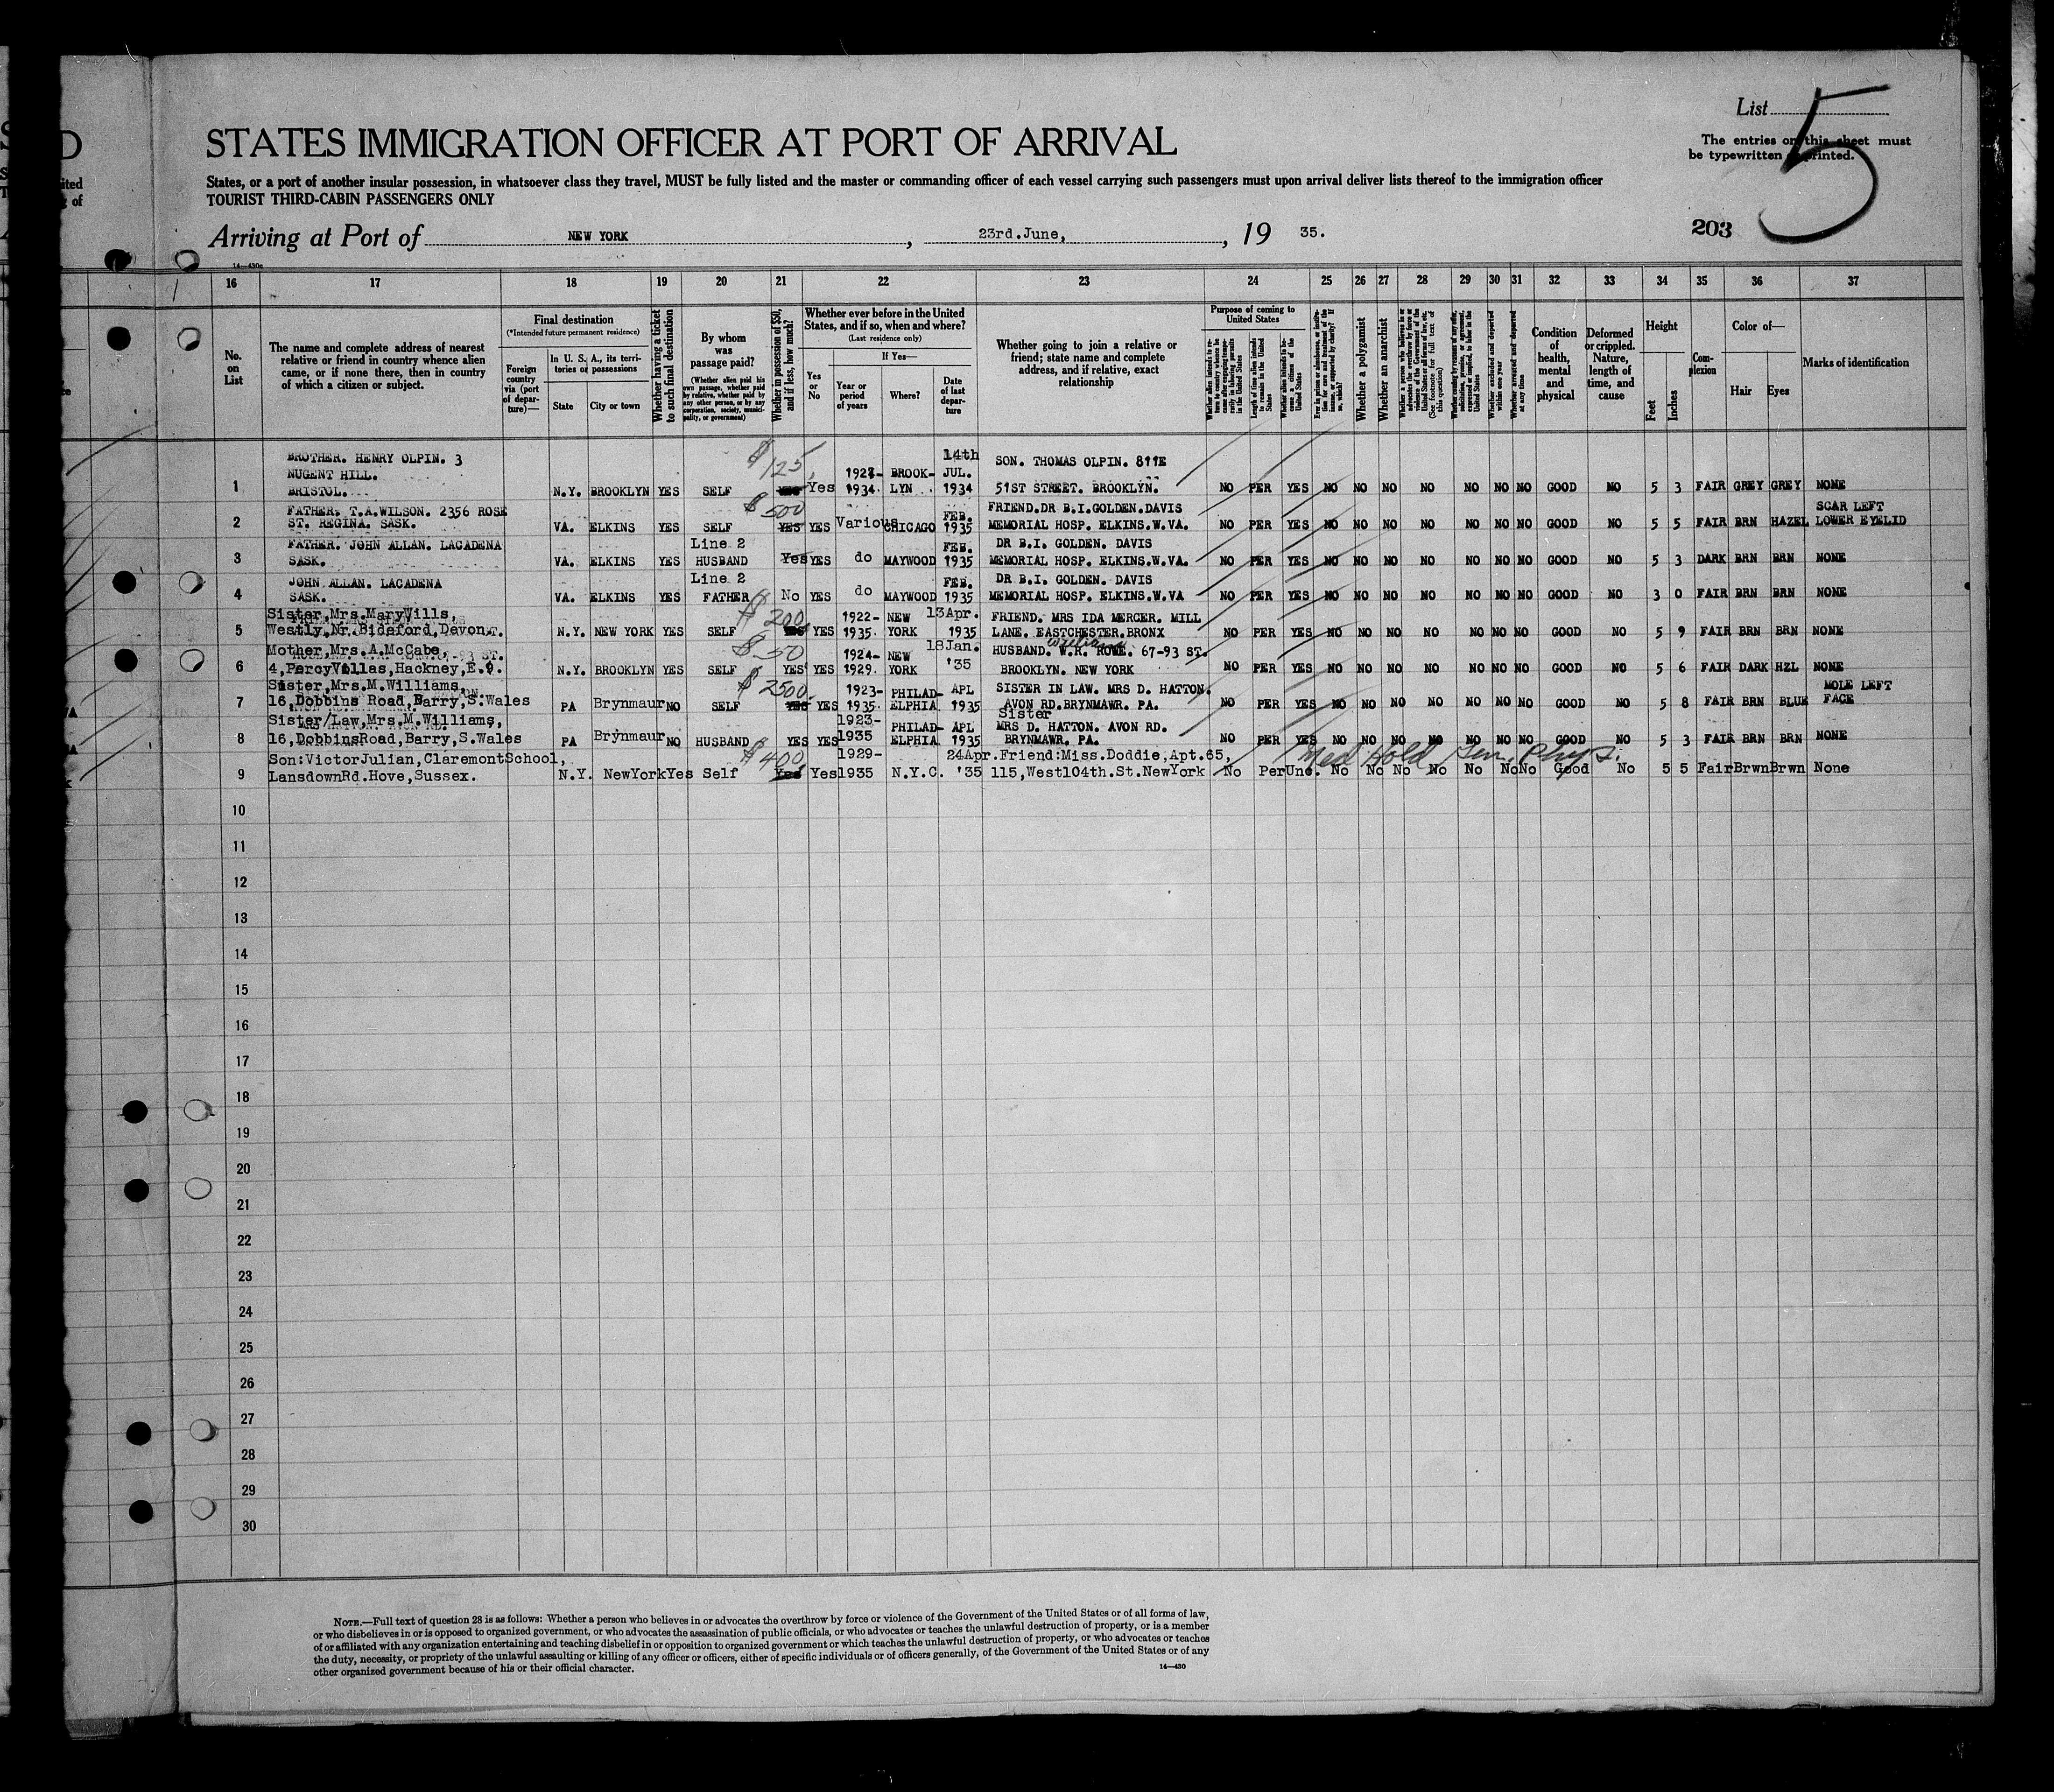 List 5
STATES IMMIGRATION OFFICER AT PORT OF ARRIVAL
The entries on this sheet must
be typewritten or printed.
States, or a port of another insular possession, in whatsoever class they travel, MUST be fully listed and the master or commanding officer of each vessel carrying such passengers must upon arrival deliver lists thereof to the immigration officer
TOURIST THIRD-CABIN PASSENGERS ONLY
Arriving at Port of NEW YORK, 23rd.June, 19 35.
203
14—430a
16 17 18 19 20 21 22 23 24 25 26 27 28 29 30 31 32 33 34 35 36 37
No.
on
List
The name and complete address of nearest
relative or friend in country whence alien
came, or if none there, then in country
of which a citizen or subject.
Final destination
(*Intended future permanent residence)
Foreign
country
via (port
of depar-
ture)—
In U. S. A., its terri-
tories or possessions
State
City or town
Whether having a ticket
to such final destination
By whom
was
passage paid?
(Whether alien paid his
own passage, whether paid
by relative, whether paid by
any other person, or by any
corporation, society, munici-
pality, or government)
Whether in possession of $50,
and if less, how much?
Whether ever before in the United
States, and if so, when and where?
(Last residence only)
Yes
or
No
If Yes—
Year or
period
of years
Where?
Date
of last
depar-
ture
Whether going to join a relative or
friend; state name and complete
address, and if relative, exact
relationship
Purpose of coming to
United States
Length of time alien intends
to remain in the United
States
Whether alien intends to be-
come a citizen of the
United States
Whether a polygamist
Whether an anarchist
(See footnote for full text of
this question)
Whether excluded and deported
within one year
Whether arrested and deported
at any time
Condition
of
health,
mental
and
physical
Deformed
or crippled.
Nature,
length of
time, and
cause
Height
Feet
Inches
Com-
plexion
Color of—
Hair
Eyes
Marks of identification
BROTHER. HENRY OLPIN. 3 $125 14th SON. THOMAS OLPIN. 811E
NUGENT HILL. BROOK- JUL.
1 BRISTOL. N.Y. BROOKLYN YES SELF YES Yes 1934 LYN 1934 51ST STREET. BROOKLYN. NO PER YES NO NO NO NO NO NO NO GOOD NO 5 3 FAIR GREY GREY NONE
FATHER. T.A.WILSON. 2356 ROSE $500 FEB. FRIEND.DR B.I.GOLDEN.DAVIS SCAR LEFT
2 ST. REGINA. SASK. VA. ELKINS YES SELF YES YES Various CHICAGO 1935 MEMORIAL HOSP. ELKINS.W.VA. NO PER YES NO NO NO NO NO NO NO GOOD NO 5 5 FAIR BRN HAZEL LOWER EYELID
FATHER. JOHN ALLAN. LACADENA Line 2 FEB. DR B.I. GOLDEN. DAVIS
3 SASK. VA. ELKINS YES HUSBAND Yes YES do MAYWOOD 1935 MEMORIAL HOSP. ELKINS.W.VA. NO PER YES NO NO NO NO NO NO NO GOOD NO 5 3 DARK BRN BRN NONE
JOHN ALLAN. LACADENA Line 2 FEB. DR B.I. GOLDEN. DAVIS
4 SASK. VA. ELKINS YES FATHER No YES do MAYWOOD 1935 MEMORIAL HOSP. ELKINS.W.VA NO PER YES NO NO NO NO NO NO NO GOOD NO 3 0 FAIR BRN BRN NONE
Sister,Mrs.MaryVills, $200 1922- NEW 13Apr. FRIEND. MRS IDA MERCER. MILL
5 Westly,Nr.Bideford,Devon. N.Y. NEW YORK YES SELF YES YES 1935. YORK 1935 LANE. EASTCHESTER.BRONX NO PER YES NO NO NO NO NO NO NO GOOD NO 5 9 FAIR BRN BRN NONE
Mother,Mrs.A.McCabe, $50 1924- NEW 18Jan. HUSBAND. W.R. ROWE. 67-93 ST.
6 4,PercyVillas,Hackney,E.9. N.Y. BROOKLYN YES SELF YES YES 1929. YORK '35 BROOKLYN. NEW YORK NO PER YES NO NO NO NO NO NO NO GOOD NO 5 6 FAIR DARK HZL NONE
Sister,Mrs.M.Williams, $2500. 1923- PHILAD- APL SISTER IN LAW. MRS D. HATTON. MOLE LEFT
7 16,Dobbins Road,Barry,S.Wales PA Brynmaur NO SELF YES YES 1935. ELPHIA 1935 AVON RD.BRYNMAWR. PA. NO PER YES NO NO NO NO NO NO NO GOOD NO 5 8 FAIR BRN BLUE FACE
Sister/Law,Mrs.M.Williams, 1923- PHILAD- APL Sister MRS D. HATTON. AVON RD.
8 16,DobbinsRoad,Barry,S.Wales PA Brynmaur NO HUSBAND YES YES 1935 ELPHIA 1935 BRYNMAWR. PA. NO PER YES NO NO NO NO NO NO NO GOOD NO 5 3 FAIR BRN BRN NONE
Son:VictorJulian,ClaremontSchool, $400 1929- 24Apr.Friend:Miss.Doddie,Apt.65, Med Hold Gen. Phys.
9 LansdownRd.Hove,Sussex. N.Y. NewYork Yes Self Yes Yes 1935 N.Y.C. '35 115,West104th.St.NewYork No Per Unc. No No No No No No No Good No 5 5 Fair Brwn Brwn None
10
11
12
13
14
15
16
17
18
19
20
21
22
23
24
25
26
27
28
29
30
NOTE.—Full text of question 28 is as follows: Whether a person who believes in or advocates the overthrow by force or violence of the Government of the United States or of all forms of law,
or who disbelieves in or is opposed to organized government, or who advocates the assassination of public officials, or who advocates or teaches the unlawful destruction of property, or is a member
of or affiliated with any organization entertaining and teaching disbelief in or opposition to organized government or which teaches the unlawful destruction of property, or who advocates or teaches
the duty, necessity, or propriety of the unlawful assaulting or killing of any officer or officers, either of specific individuals or of officers generally, of the Government of the United States or of any
other organized government because of his or their official character.
14—430